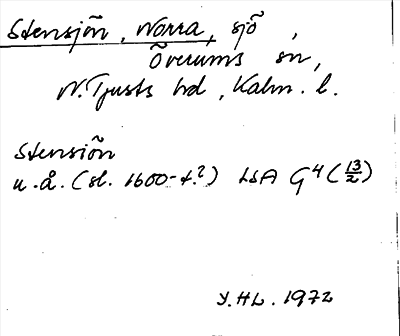 Stensjön, Norra, sjö,
Överums sn,
N. Tjusts hd, Kalm. l.
Stensiön
u.å. (sl. 1600-t.?) LSA G4 (13/2)
Y.HL. 1972